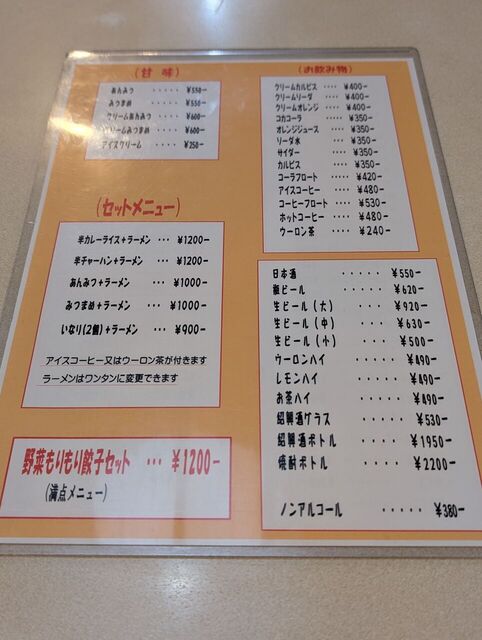 (甘 味)
あんみつ ····· ¥550-
みつまめ ····· ¥550-
クリームあんみつ ···· ¥600-
クリームみつまめ ···· ¥600-
アイスクリーム ···· ¥250-
(セットメニュー)
半カレーライス+ラーメン ··· ¥1200-
半チャーハン+ラーメン ··· ¥1200-
あんみつ+ラーメン ···· ¥1000-
みつまめ+ラーメン ···· ¥1000-
いなり(2個)+ラーメン ···· ¥900-
アイスコーヒー又はウーロン茶が付きます
ラーメンはワンタンに変更できます
野菜もりもり餃子セット ··· ¥1200-
(満点メニュー)
(お飲み物)
クリームカルピス ···· ¥400-
クリームソーダ ···· ¥400-
クリームオレンジ ···· ¥400-
コカコーラ ···· ¥350-
オレンジジュース ···· ¥350-
ソーダ水 ···· ¥350-
サイダー ···· ¥350-
カルピス ···· ¥350-
コーラフロート ···· ¥420-
アイスコーヒー ···· ¥480-
コーヒーフロート ···· ¥530-
ホットコーヒー ···· ¥480-
ウーロン茶 ···· ¥240-
日本酒 ····· ¥550-
瓶ビール ····· ¥620-
生ビール(大) ···· ¥920-
生ビール(中) ···· ¥630-
生ビール(小) ···· ¥500-
ウーロンハイ ····· ¥490-
レモンハイ ····· ¥490-
お茶ハイ ····· ¥490-
紹興酒グラス ····· ¥530-
紹興酒ボトル ···· ¥1950-
焼酎ボトル ····· ¥2200-
ノンアルコール ····· ¥380-